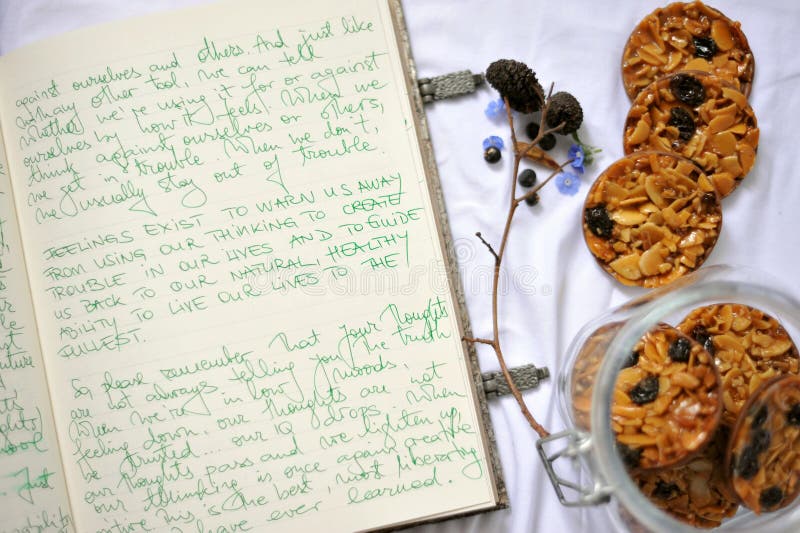 against ourselves and others. And just like
with any other tool, we can tell
whether we're using it for or against
ourselves by how it feels. When we
think against ourselves or others,
we get in trouble. When we don't,
we usually stay out of trouble.
FEELINGS EXIST TO WARN US AWAY
FROM USING OUR THINKING TO CREATE
TROUBLE IN OUR LIVES AND TO GUIDE
US BACK TO OUR NATURAL, HEALTHY
ABILITY TO LIVE OUR LIVES TO THE
FULLEST.
So, please remember that your thoughts
are not always telling you the truth
When we're in low moods,
feeling down, our thoughts are not
be trusted... our IQ drops. When
our thoughts pass and we lighten up
our thinking is once again creative
this is the best, most liberating
have ever learned.
Just
dreamstime